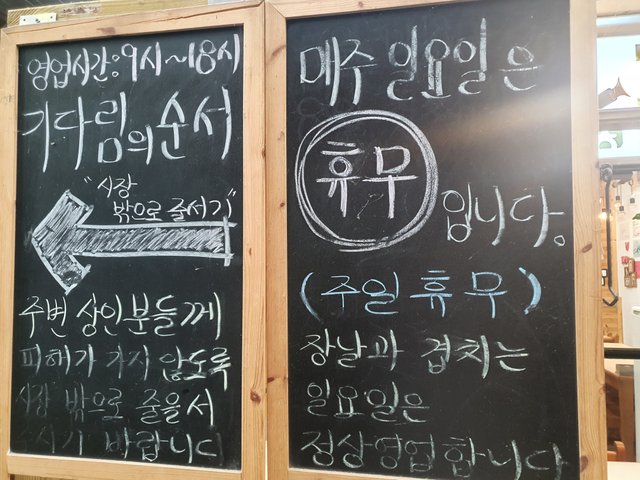 영업시간:9시~18시
기다림의 순서
"시장
밖으로 줄서기"
주변 상인분들께
피해가 가지 않도록
시장 밖으로 줄을서
주시기 바랍니다
매주 일요일은
휴무
입니다.
(주일 휴무)
장날과 겹치는
일요일은
정상영업합니다